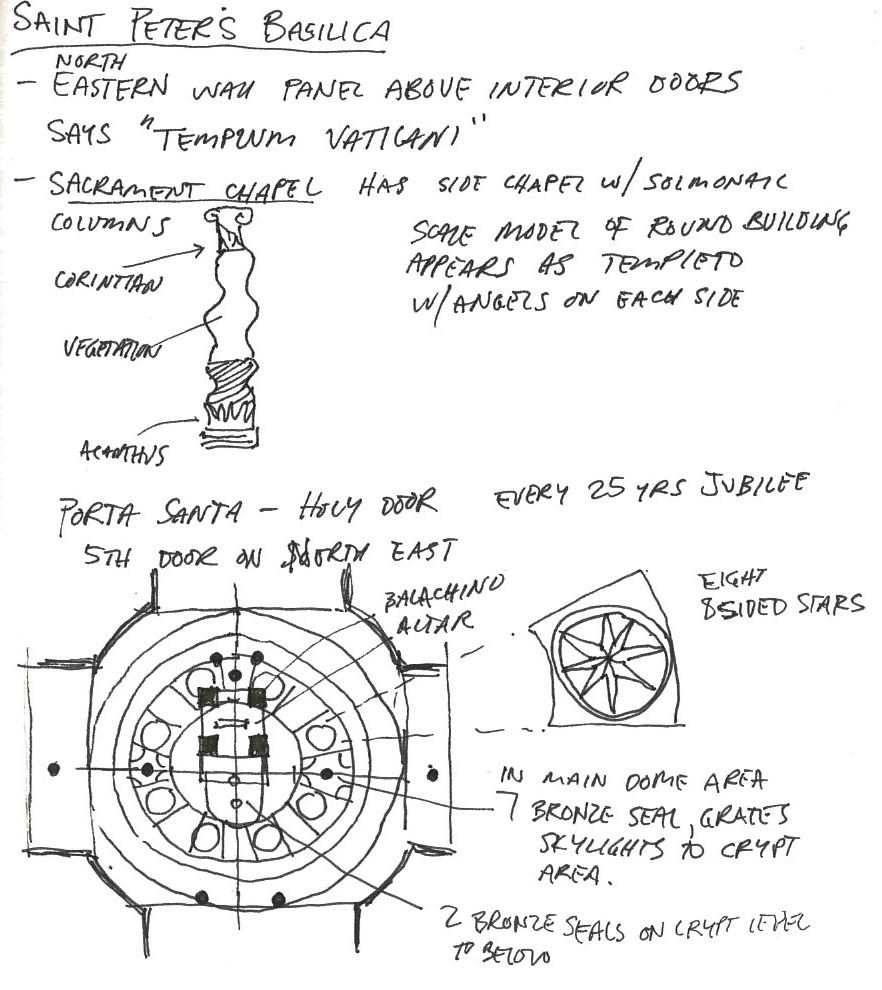 SAINT PETER'S BASILICA
NORTH
- EASTERN WALL PANEL ABOVE INTERIOR DOORS
SAYS "TEMPLUM VATICANI"
- SACRAMENT CHAPEL HAS SIDE CHAPEL W/ SOLMONAIC
COLUMNS
SCALE MODEL OF ROUND BUILDING
APPEARS AS TEMPIETO
W/ANGELS ON EACH SIDE
CORINTIAN
VEGETATION
ACANTHUS
PORTA SANTA - HOLY DOOR EVERY 25 YRS JUBILEE
5TH DOOR ON NORTH EAST
BALACHINO
ALTAR
EIGHT
8 SIDED STARS
IN MAIN DOME AREA
7 BRONZE SEAL, GRATES
SKYLIGHTS TO CRYPT
AREA.
2 BRONZE SEALS ON CRYPT LEVEL
TO BELOW